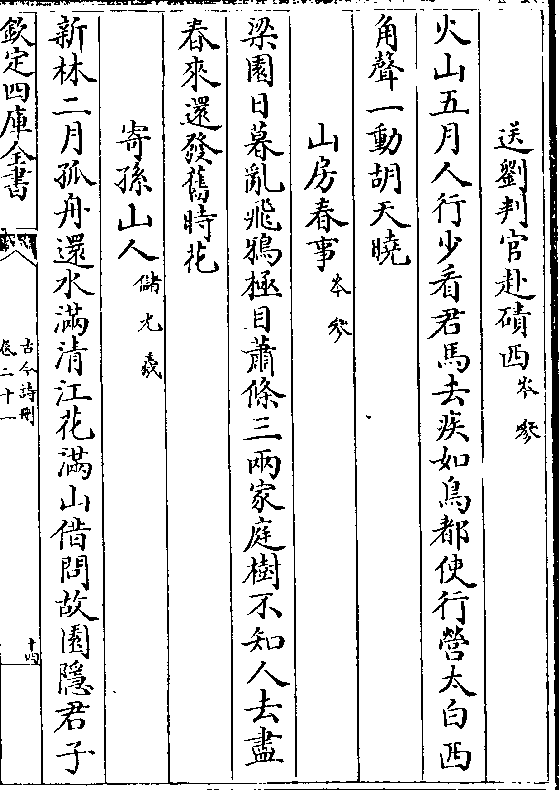 送劉判官赴磧西岑參
火山五月人行少看君馬去疾如鳥都使行營太白西
角聲一動胡天曉
山房春事岑參
梁園日暮亂飛鴉極目蕭條三兩家庭樹不知人去盡
春來還發舊時花
寄孫山人儲光羲
新林二月孤舟還水滿清江花滿山借問故園隱君子
欽定四庫全書
古今詩刪
卷二十一
十四